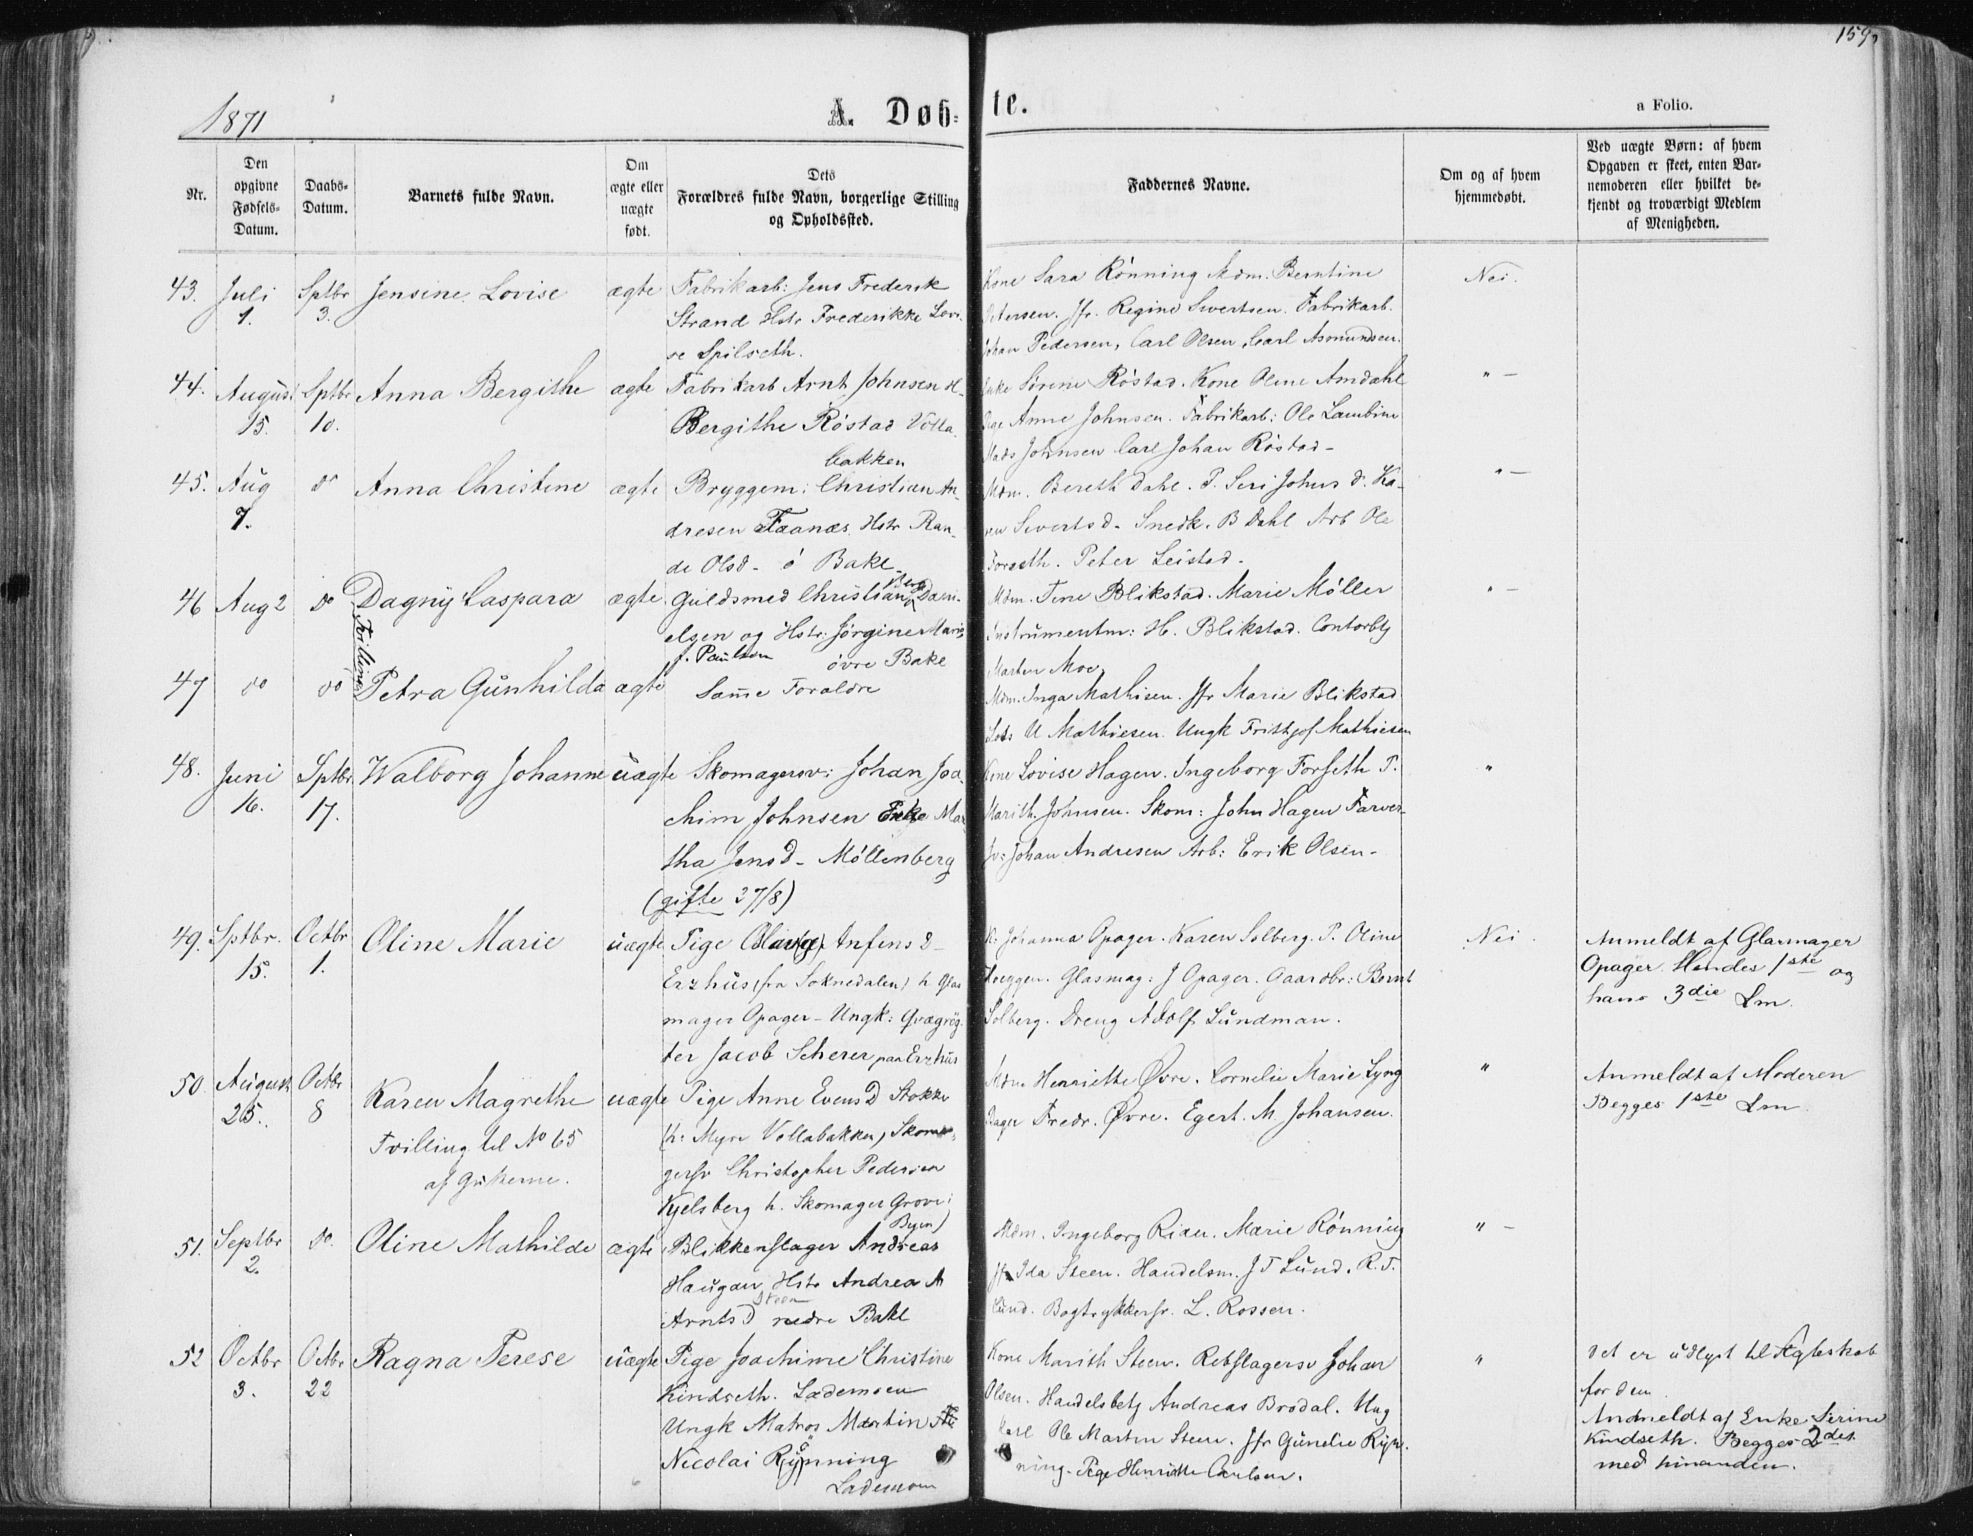 159.
1871
A. Døb-
te.
a Folio.
Nr.
Den
opgivne
Fødsels-
Datum.
Daabs-
Datum.
Barnets fulde Navn.
Om
ægte eller
uægte
født.
Dets
Forældres fulde Navn, borgerlige Stilling
og Opholdssted.
Faddernes Navne.
Om og af hvem
hjemmedøbt.
Ved uægte Børn: af hvem
Opgaven er skeet, enten Bar-
nemoderen eller hvilket be-
kjendt og troværdigt Medlem
af Menigheden.
43. Juli Sptbr Jensine Lovise ægte Fabrikarb: Jens Frederik
1. 3. Strand Hstr Frederikke Lovi-
se Spilseth.
Kone Sara Rönning Mdm. Berntine
Petersen. Jfr. Regine Sivertsen. Fabrikarb.
Johan Pedersen, Carl Olsen, Carl Asmundsen.
Nei.
44. August Sptbr Anna Bergithe ægte Fabrikarb Arnt Johnsen H-
15. 10. Bergithe Röstad Volla-
bakken
Enke Sörene Röstad. Kone Oline Amdahl
Pige Anne Johnsen. Fabrikarb: Ole Lambine
Mads Johnsen Carl Johan Röstad-
" -
45. Aug do Anna Christine ægte Bryggem: Christian An-
7. dresen Faanæs Hstr Ran-
de Olsd- ö Bakl-
Mdm. Bereth Dahl. P. Seri Johns d. Ka-
ren Sivertsd- Snedk. B Dahl Arb Ole
Forseth. Peter Leistad-
" -
46 Aug 2 do Dagny Caspara ægte Guldsmed Christian Berg Dani-
elsen og Hstr: Jörgine Marie
f. Paulsen övre Bakl
Mdm. Tine Blikstad. Marie Möller
Instrumentm: H. Blikstad. Contorbtj
Morten Moe,
" -
Tvilling
47 do do Petra Gunhilda ægte Same Forældre
Mdm. Inga Mathisen. Jfr Marie Blikstad
U Mathiesen. Ungk Frithjof Mathiesen
48. Juni Sptbr. Walborg Johanne uægte Skomagersv: Johan Joa-
16. 17. chim Johnsen Enke Mar-
tha Jensd- Möllenberg
(gifte 27/8)
Kone Lovise Hagen. Ingeborg Forseth P.
Marith. Johnsen. Skom: John Hagen Farver-
sv: Johan Andresen Arb: Erik Olsen-
"
49. Sptbr. Octbr Oline Marie uægte Pige Anfensd-
15. 1. Erzhus (fra Soknedalen) h Glas
mager Opager- Ungk: Qvægrög-
ter Jacob Scherer paa Erzhus
K. Johanna Opager. Karen Solberg. P. Oline
Hoeggen. Glasmag: J Opager. Gaardbr: Bernt
Solberg. Dreng Adolf Lundman.
Nei.
Anmeldt af Glasmager
Opager. Hendes 1ste og
hans 3die Lm.
50. August Octbr Karen Magrethe uægte Pige Anne Evensd Stokke
25. 8 Tvilling til No 65 (h: Myre Vollabakken) Skoma-
af Gutterne. gersv Christopher Pedersen
Kjelsberg h. Skomager Grove i
Byen)
Mdm Henriette Øvre. Cornelie Marie Lyng
Fredr. Øvre. Egert. M Johansen.
"
Anmeldt af Moderen
Begges 1ste Lm
51. Septbr do. Oline Mathilde ægte Blikkenslager Andreas
2. Haugan Hstr Andrea M
Arntsd Steen nedre Bakl
Mdm. Ingeborg Rian. Marie Rönning
Jfr Ida Steen. Handelsm. J T Lund. R. T.
Lund. Bogtrykkersv. L. Rossen.
" -
52 Octbr Octbr Ragna Terese uægte Pige Joachime Christine
3. 22 Kindseth. Lademoen
Ungk Matros Martin
Nicolai Rönning
Lademoen
Kone Marith Steen. Rebslagersv Johan
Olsen. Handelsbetj Andreas Brodal. Ung
karl Ole Martin Steen. Jfr Gunelie Ryn-
ning. Pige Henriette Carlsen.
"
Det er udlyst til Ægteskab
for dem.
Andmeldt af Enke Serine
Kindseth. Begges 2det
med hinanden.